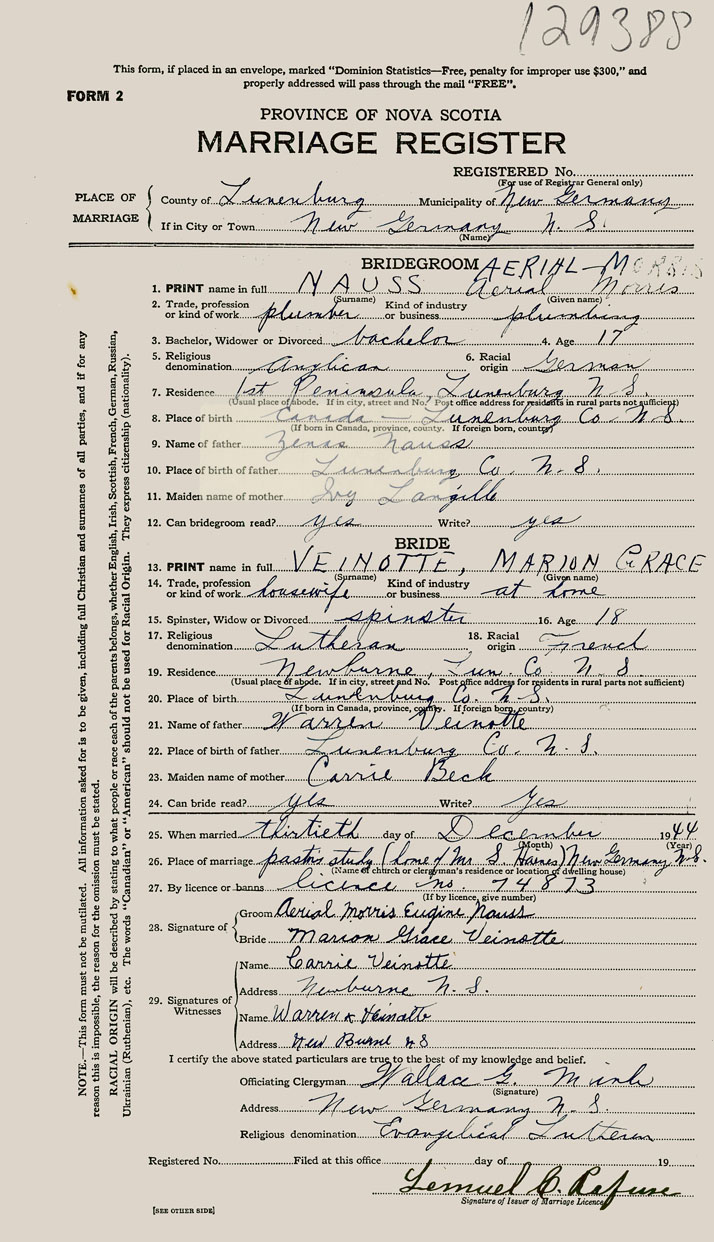 129388
This form, if placed in an envelope, marked “Dominion Statistics—Free, penalty for improper use $300,” and
properly addressed will pass through the mail “FREE”.
FORM 2
PROVINCE OF NOVA SCOTIA
MARRIAGE REGISTER
REGISTERED No.
(For use of Registrar General only)
PLACE OF MARRIAGE
County of Lunenburg Municipality of New Germany
If in City or Town New Germany N. S.
(Name)
BRIDEGROOM AERIAL—MORRIS
1. PRINT name in full NAUSS Aerial Morris
(Surname) (Given name)
2. Trade, profession or kind of work plumber Kind of industry or business plumbing
3. Bachelor, Widower or Divorced bachelor 4. Age 17
5. Religious denomination Anglican 6. Racial origin German
7. Residence 1st Peninsula, Lunenburg N. S.
(Usual place of abode. If in city, street and No. Post office address for residents in rural parts not sufficient)
8. Place of birth Canada — Lunenburg Co. N. S.
(If born in Canada, province, county. If foreign born, country)
9. Name of father Zenas Nauss
10. Place of birth of father Lunenburg Co. N. S.
11. Maiden name of mother Ivy Langille
12. Can bridegroom read? yes Write? yes
BRIDE
13. PRINT name in full VEINOTTE, MARION GRACE
(Surname) (Given name)
14. Trade, profession or kind of work housewife Kind of industry or business at home
15. Spinster, Widow or Divorced spinster 16. Age 18
17. Religious denomination Lutheran 18. Racial origin French
19. Residence Newburne, Lun. Co. N. S.
(Usual place of abode. If in city, street and No. Post office address for residents in rural parts not sufficient)
20. Place of birth Lunenburg Co. N. S.
(If born in Canada, province, county. If foreign born, country)
21. Name of father Warren Veinotte
22. Place of birth of father Lunenburg Co. N. S.
23. Maiden name of mother Carrie Beck
24. Can bride read? yes Write? Yes
25. When married thirtieth day of December 1944
(Month) (Year)
26. Place of marriage pastor's study (home of Mr. S. Haines) New Germany, N.S.
(Name of church or clergyman's residence or location of dwelling house)
27. By licence or banns licence no. 74873
(If by licence, give number)
28. Signature of
Groom Aerial Morris Eugene Nauss
Bride Marion Grace Veinotte
29. Signatures of Witnesses
Name Carrie Veinotte
Address Newburne N. S.
Name Warren Veinotte
Address New Burne N S
I certify the above stated particulars are true to the best of my knowledge and belief.
Officiating Clergyman Wallace G.
(Signature)
Address New Germany N. S.
Religious denomination Evangelical Lutheran
Registered No. Filed at this office day of 19
Lemuel C.
Signature of Issuer of Marriage Licence
[SEE OTHER SIDE]
NOTE.—This form must not be mutilated. All information asked for is to be given, including full Christian and surnames of all parties, and if for any
reason this is impossible, the reason for the omission must be stated.
RACIAL ORIGIN will be described by stating to what people or race each of the parents belongs, whether English, Irish, Scottish, French, German, Russian,
Ukrainian (Ruthenian), etc. The words “Canadian” or “American” should not be used for Racial Origin. They express citizenship (nationality).